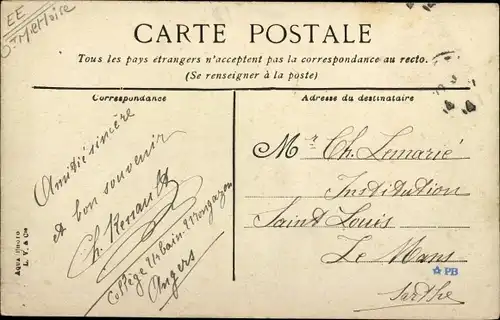 EE
CARTE POSTALE
Tous les pays étrangers n'acceptent pas la correspondance au recto.
(Se renseigner à la poste)
Correspondance
Adresse du destinataire
Amitié sincère
et bon souvenir
Ch. Renault
Collège Urbain Mongazon
Angers
Mr Ch. Lemarié
Institution
Saint Louis
Le Mans
Sarthe
PB
Aqua Photo
L. V. & Cie